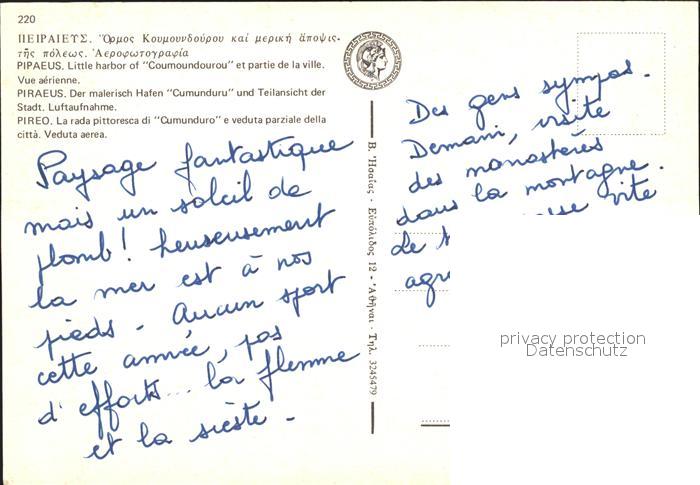 220
ΠΕΙΡΑΙΕΥΣ. Ὅρμος Κουμουνδούρου καί μερική ἄποψις
τῆς πόλεως. Ἀεροφωτογραφία
PIPAEUS. Little harbor of "Coumoundourou" et partie de la ville.
Vue aérienne.
PIRAEUS. Der malerisch Hafen "Cumunduru" und Teilansicht der
Stadt. Luftaufnahme.
PIREO. La rada pittoresca di "Cumunduro" e veduta parziale della
città. Veduta aerea.
Paysage fantastique
mais un soleil de
plomb! heureusement
la mer est à nos
pieds - Aucun sport
cette année, pas
d'efforts... la flemme
et la sieste -
Β. Ἡσαΐας - Εὐπόλιδος 12 - Ἀθῆναι - Τηλ. 3245479
Des gens sympas.
Demain, visite
des monastères
dans la montagne.
Le vite
agr
privacy protection
Datenschutz